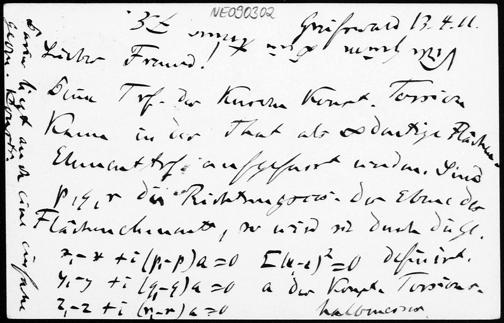 NE090302
Greifswald 13.4.11.
Lieber Freund!
Deine Trf. der Kurven konst. Torsion
kann in der That als ∞ deutige Flächen-
Elementtrf. aufgefasst werden. Sind
p, q, r die Richtungscos. der Ebene des
Flächenelements, so wird sie durch die Gl.
x₁-x + i(p₁-p)a=0 Σ(x₁-x)²=0 definirt.
y₁-y + i(q₁-q)a=0 a der Konst. Torsions-
z₁-z + i(r₁-r)a=0 halbmesser.
Darin liegt auch eine einfache
geom. Konstr.
Viele